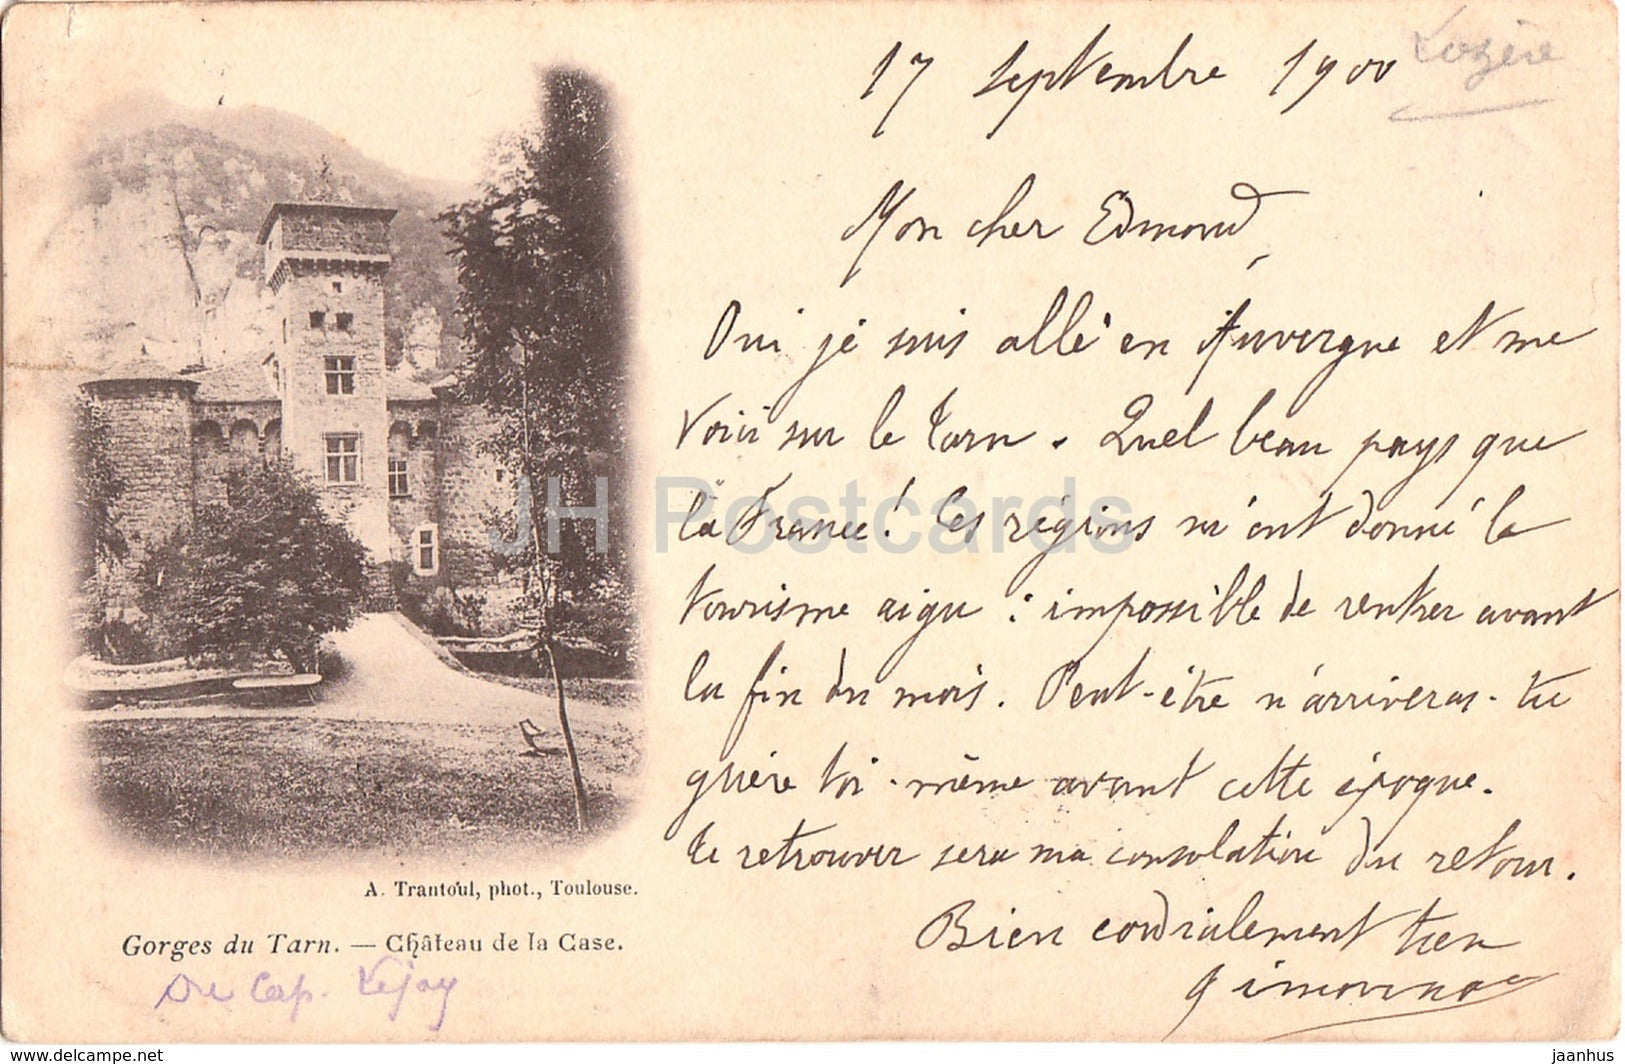 17 Septembre 1900
Lozère
Mon cher Edmond,
Oui je suis allé en Auvergne et me
voici sur le Tarn. Quel beau pays que
la France! Ces régions m'ont donné le
tourisme aigu : impossible de rentrer avant
la fin du mois. Peut-être n'arriveras-tu
guère toi-même avant cette époque.
Te retrouver sera ma consolation du retour.
Bien cordialement tien
A. Trantoul, phot., Toulouse.
Gorges du Tarn. — Château de la Case.
Du Cap. Lejay
JH Postcards
www.delcampe.net
jaanhus